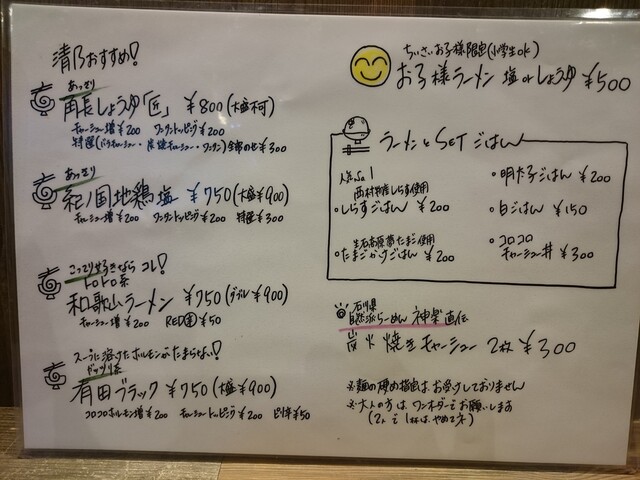 清乃おすすめ!
あっさり
角長しょうゆ「匠」 ¥800(大盛不可)
チャーシュー増¥200 ワンタントッピング¥200
特選(バラチャーシュー・炭焼チャーシュー・ワンタン)全部のせ¥300
あっさり
紀ノ国地鶏塩 ¥750(大盛¥900)
チャーシュー増¥200 ワンタントッピング¥200 特選¥300
こってり好きなら コレ!
トロトロ系
和歌山ラーメン ¥750(ダブル¥900)
チャーシュー増¥200 RED ¥50
スープに溶けたホルモンがたまらない!
ガッツリ系
有田ブラック ¥750(大盛¥900)
コロコロホルモン増¥200 チャーシュートッピング¥200 ピリ辛¥50
ちいさいお子様限定(小学生ok)
お子様ラーメン 塩orしょうゆ ¥500
ラーメンとSETごはん
人気No.1
西村物産しらす使用
・しらすごはん ¥200
生石高原蕾たまご使用
・たまごかけごはん ¥200
・明太子ごはん ¥200
・白ごはん ¥150
・コロコロ
チャーシュー丼 ¥300
石川県
自然派らーめん 神楽 直伝
炭火焼きチャーシュー 2枚 ¥300
※麺の硬め指定は お受けしておりません
※大人の方は ワンオーダーでお願いします
(2人で1杯は、やめてネ)